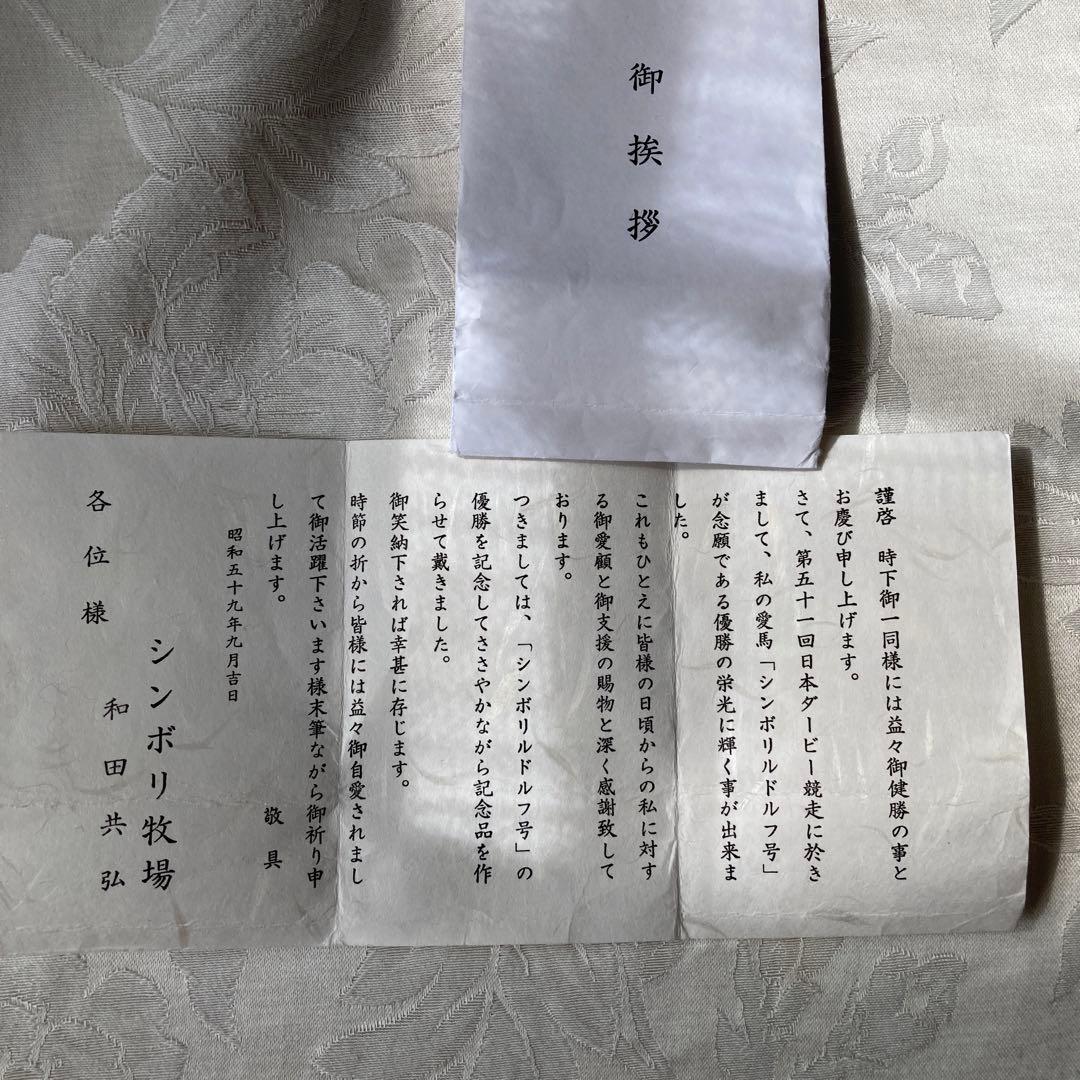 御挨拶
謹啓　時下御一同様には益々御健勝の事と
お慶び申し上げます。
さて、第五十一回日本ダービー競走に於き
まして、私の愛馬「シンボリルドルフ号」
が念願である優勝の栄光に輝く事が出来ま
した。
これもひとえに皆様の日頃からの私に対す
る御愛顧と御支援の賜物と深く感謝致して
おります。
つきましては、「シンボリルドルフ号」の
優勝を記念してささやかながら記念品を作
らせて戴きました。
御笑納下されば幸甚に存じます。
時節の折から皆様には益々御自愛されまし
て御活躍下さいます様末筆ながら御祈り申
し上げます。
敬具
昭和五十九年九月吉日
シンボリ牧場
和田共弘
各位様